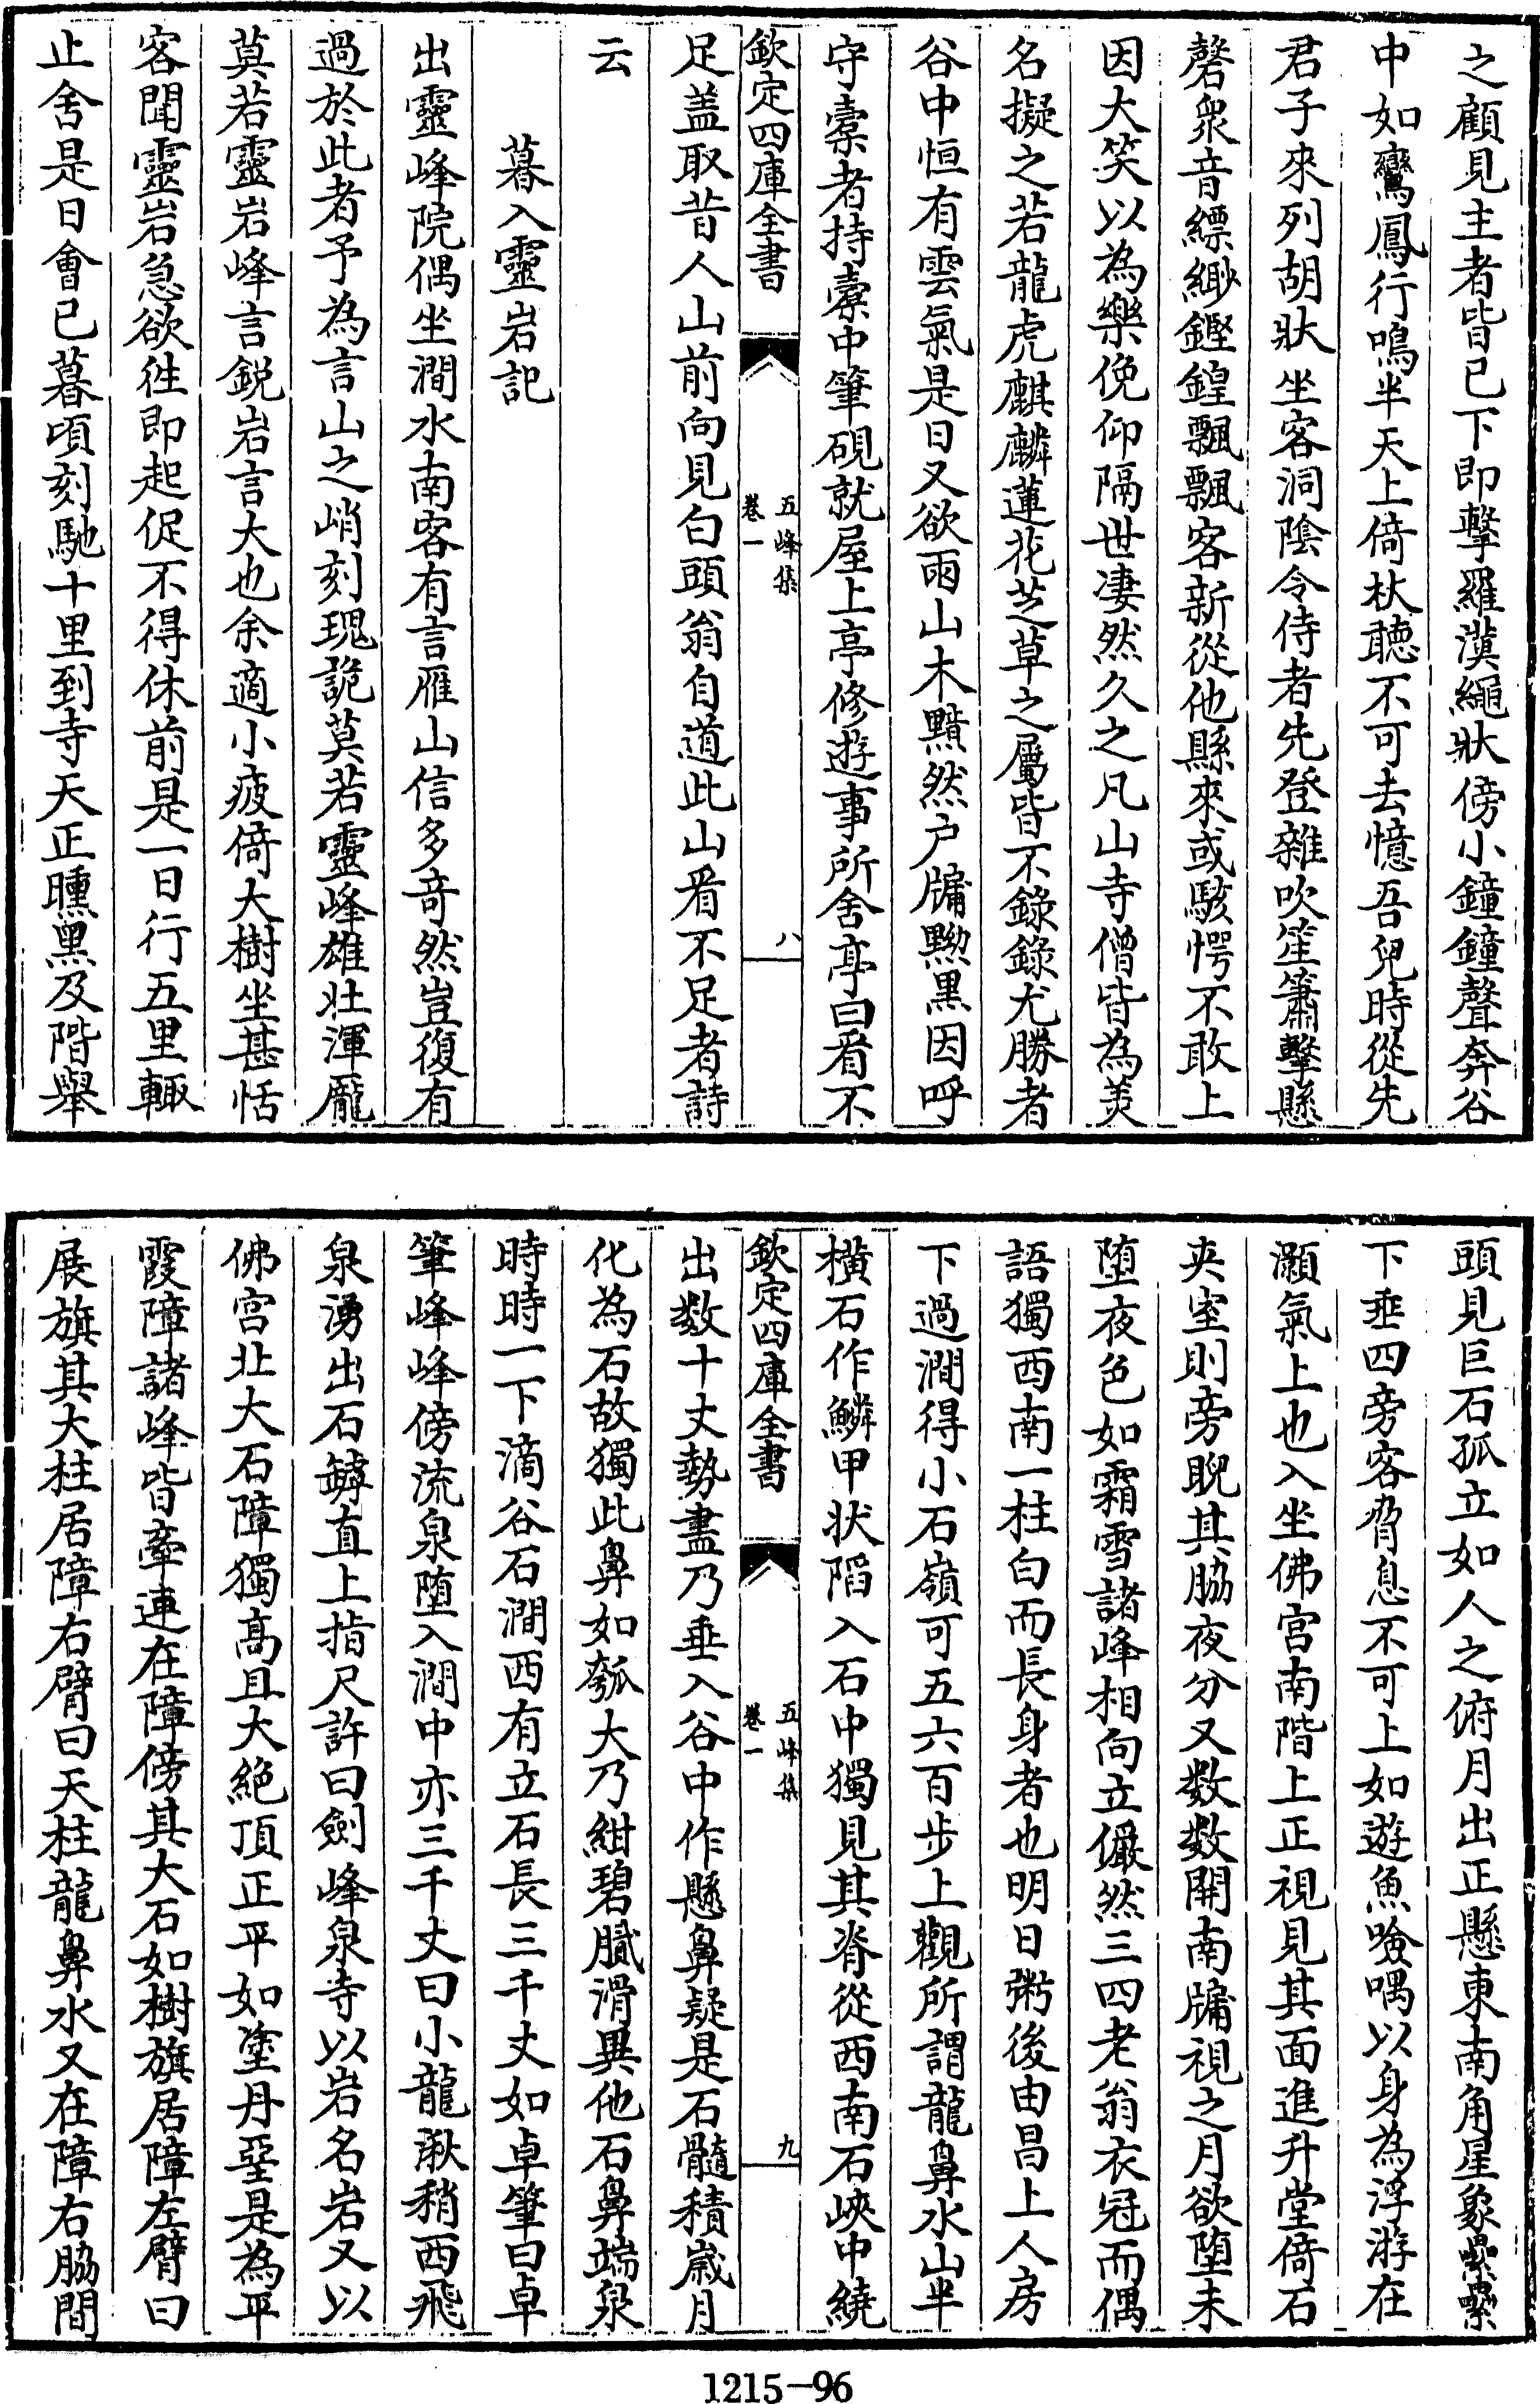 之顧見主者皆已下即擊羅漢繩狀傍小鐘鐘聲奔谷
中如鸞鳳行鳴半天上倚杖聽不可去憶吾兒時從先
君子來列胡牀坐客洞陰令侍者先登雜吹笙簫擊懸
磬衆音縹緲鏗鍠飄飄客新從他縣來或駭愕不敢上
因大笑以為樂俛仰隔世凄然久之凡山寺僧皆為羙
名擬之若龍虎麒麟蓮花芝草之屬皆不錄錄尤勝者
谷中恒有雲氣是日又欲雨山木黯然户牖黝黒因呼
守橐者持橐中筆硯就屋上亭修遊事所舍亭曰看不
欽定四庫全書
五峰集
卷一
八
足盖取昔人山前向見白頭翁自道此山看不足者詩
云
暮入靈岩記
出靈峰院偶坐澗水南客有言雁山信多竒然豈復有
過於此者予為言山之峭刻瑰詭莫若靈峰雄壯渾厖
莫若靈岩峰言鋭岩言大也余適小疲倚大樹坐甚恬
客聞靈岩急欲徃即起促不得休前是一日行五里輙
止舍是日會已暮頃刻馳十里到寺天正曛黒及階舉
頭見巨石孤立如人之俯月出正懸東南角星象纍纍
下垂四旁客脅息不可上如遊魚噞喁以身為浮游在
灝氣上也入坐佛宫南階上正視見其面進升堂倚石
夾室則旁睨其脇夜分又数数開南牖視之月欲堕未
堕夜色如霜雪諸峰相向立儼然三四老翁衣冠而偶
語獨西南一柱白而長身者也明日粥後由昌上人房
下過澗得小石嶺可五六百步上觀所謂龍鼻水山半
横石作鱗甲状陷入石中獨見其脊從西南石峽中繞
欽定四庫全書
五峰集
卷一
九
出数十丈勢盡乃垂入谷中作懸鼻疑是石髓積嵗月
化為石故獨此鼻如瓠大乃紺碧膩滑異他石鼻端泉
時時一下滴谷石澗西有立石長三千丈如卓筆曰卓
筆峰峰傍流泉堕入澗中亦三千丈曰小龍湫稍西飛
泉湧出石罅直上指尺許曰劍峰泉寺以岩名岩又以
佛宫北大石障獨髙且大絶頂正平如塗丹堊是為平
霞障諸峰皆牽連在障傍其大石如樹旗居障左臂曰
展旗其大柱居障右臂曰天柱龍鼻水又在障右脇間
1215-96